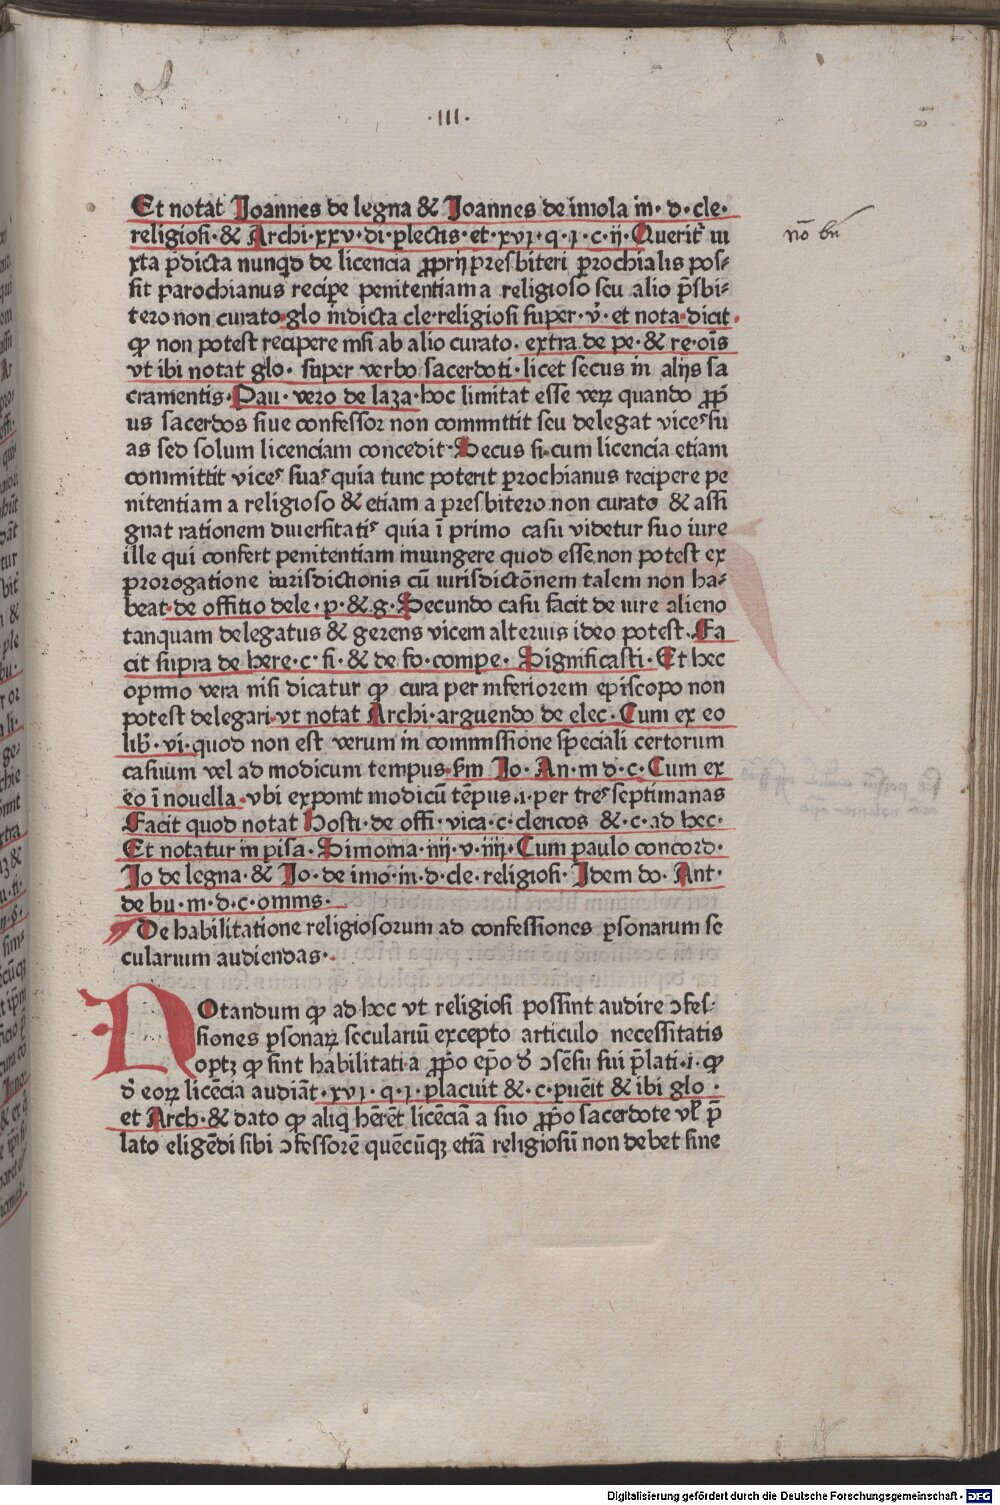 ·III·
Et notat Ioannes de legna & Ioannes de imola in· d· cle·
religiosi· & Archi· xxv· di· p̱lectis· et· xvı· q· ı· c· ij· Querit̉ iu
xta p̱dicta nunqd de licencia p̱prij presbiteri p̱rochialis pos⸗
sit parochianus recip̱e penitentiam a religioso seu alio p̄sbi⸗
tero non curato· glo in dicta cle· religiosi super· v̉· et nota· dicit·
ꝙ non potest recipere nisi ab alio curato· extra de pe· & re· oīs
vt ibi notat glo· super verbo sacerdoti· licet secus in alijs sa
cramentis· Pau· vero de laza· hoc limitat esse verꝝ quando ꝓpͥ
us sacerdos siue confessor non committit seu delegat vices su
as sed solum licenciam concedit· Secus si· cum licencia etiam
committit vices suas quia tunc poterit p̱rochianus recipere pe
nitentiam a religioso & etiam a presbitero non curato & assi
gnat rationem diuersitatis quia ī primo casu videtur suo iure
ille qui confert penitentiam iniungere quod esse non potest ex
prorogatione iurisdictionis cū iurisdictōnem talem non ha⸗
beat· de offitio dele· p· & g· Secundo casu facit de iure alieno
tanquam delegatus & gerens vicem alterius ideo potest· Fa
cit supra de here· c· fi· & de fo· compe· Significasti· Et hec
opinio vera nisi dicatur ꝙ cura per inferiorem episcopo non
potest delegari· vt notat Archi· arguendo de elec· Cum ex eo
lib̉· vi· quod non est verum in commissione speciali certorum
casuum vel ad modicum tempus· s̄m Io· An· in d· c· Cum ex
eo ī nouella· vbi exponit modicū tēpus· ı· per tres septimanas
Facit quod notat Hosti· de offi· vica· c· clericos & c· ad hec·
Et notatur in pisa· Simonia· iiij· v· iiij· Cum paulo concord·
Io de legna· & Io· de imo· in· d· cle· religiosi· Idem do· Ant·
de bu· in· d· c· omnis·
De habilitatione religiosorum ad confessiones p̱sonarum se
cularium audiendas·
NOtandum ꝙ ad hoc vt religiosi possint audire ɔfes⸗
siones p̱sonaꝝ seculariū excepto articulo necessitatis
optꝫ ꝙ sint habilitati a ꝓpͦo ep̄o đ ɔsēsu sui p̄lati· i· ꝙ
đ eoꝝ licēcia audiāt· xvı· q· ı· placuit & · c· p̱uēit & ibi glo·
et Arch· & dato ꝙ aliq̉ hērēt licēciā a suo ꝓpͦo sacerdote vl̉ p̄
lato eligēdi sibi ɔfessorē quēcūqꝫ etiā religiosū non debet sine
nō bn̄
Digitalisierung gefördert durch die Deutsche Forschungsgemeinschaft · DFG